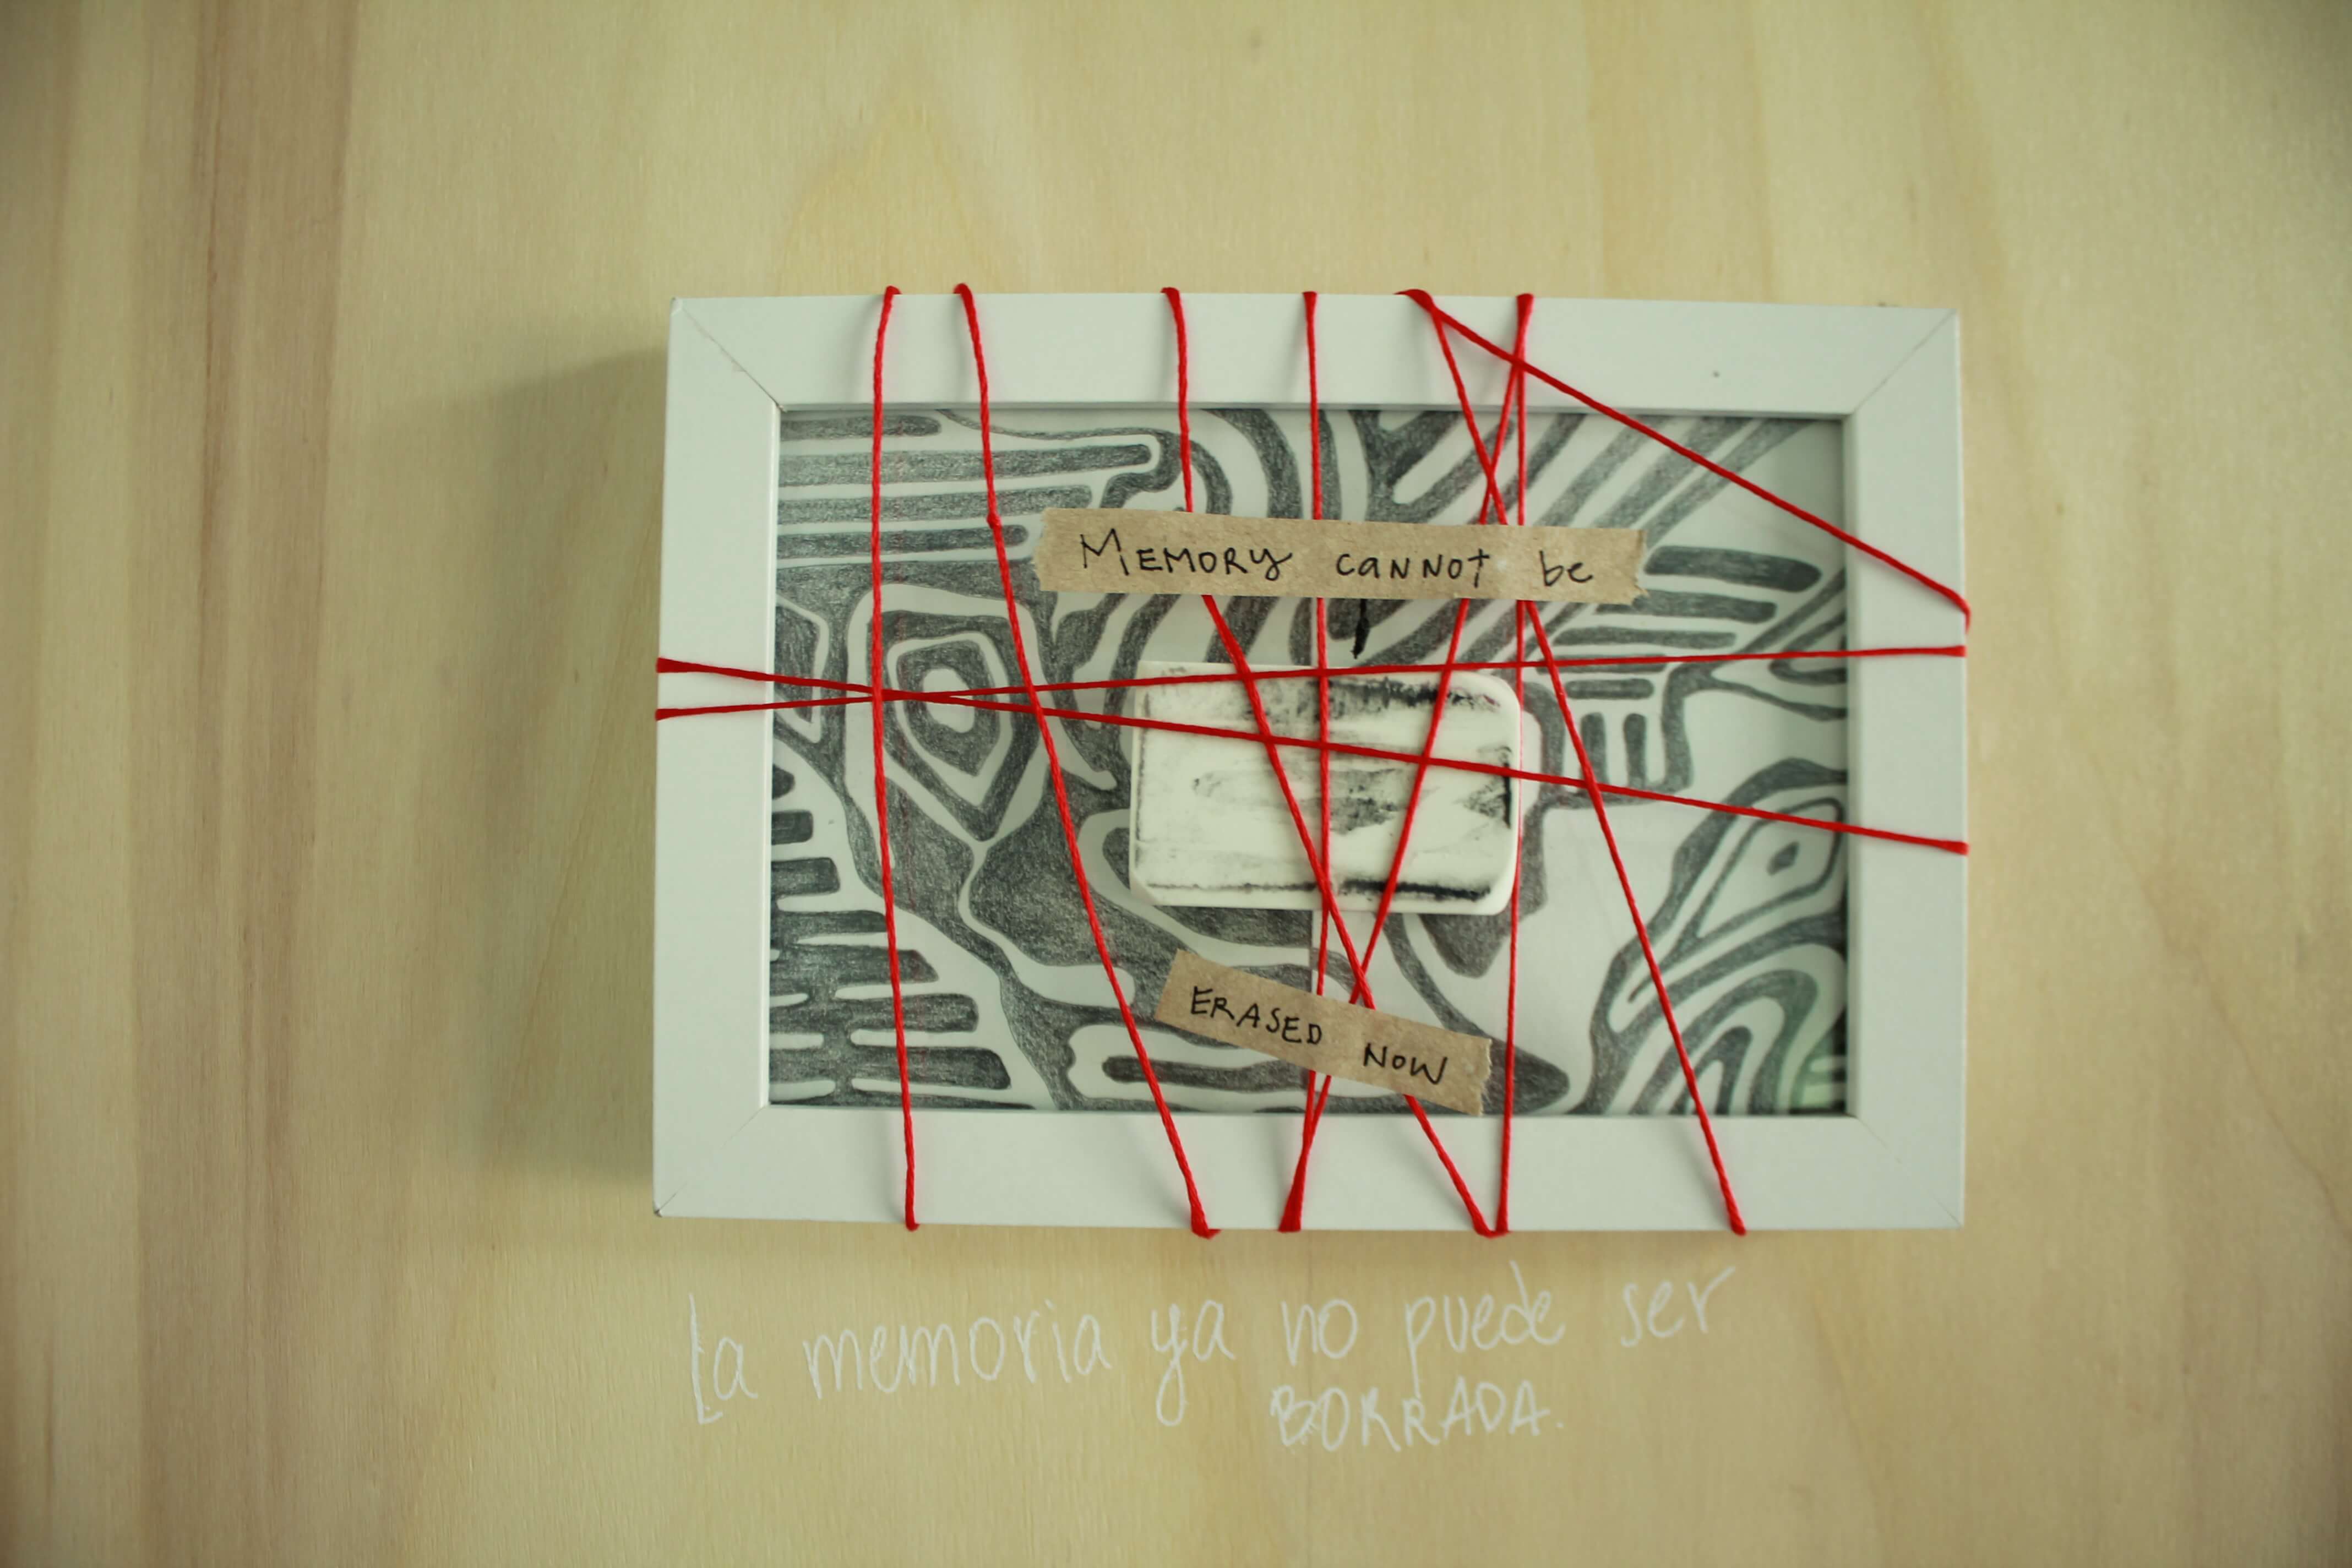 MEMORY CANNOT be
ERASED NOW
La memoria ya no puede ser
BORRADA.